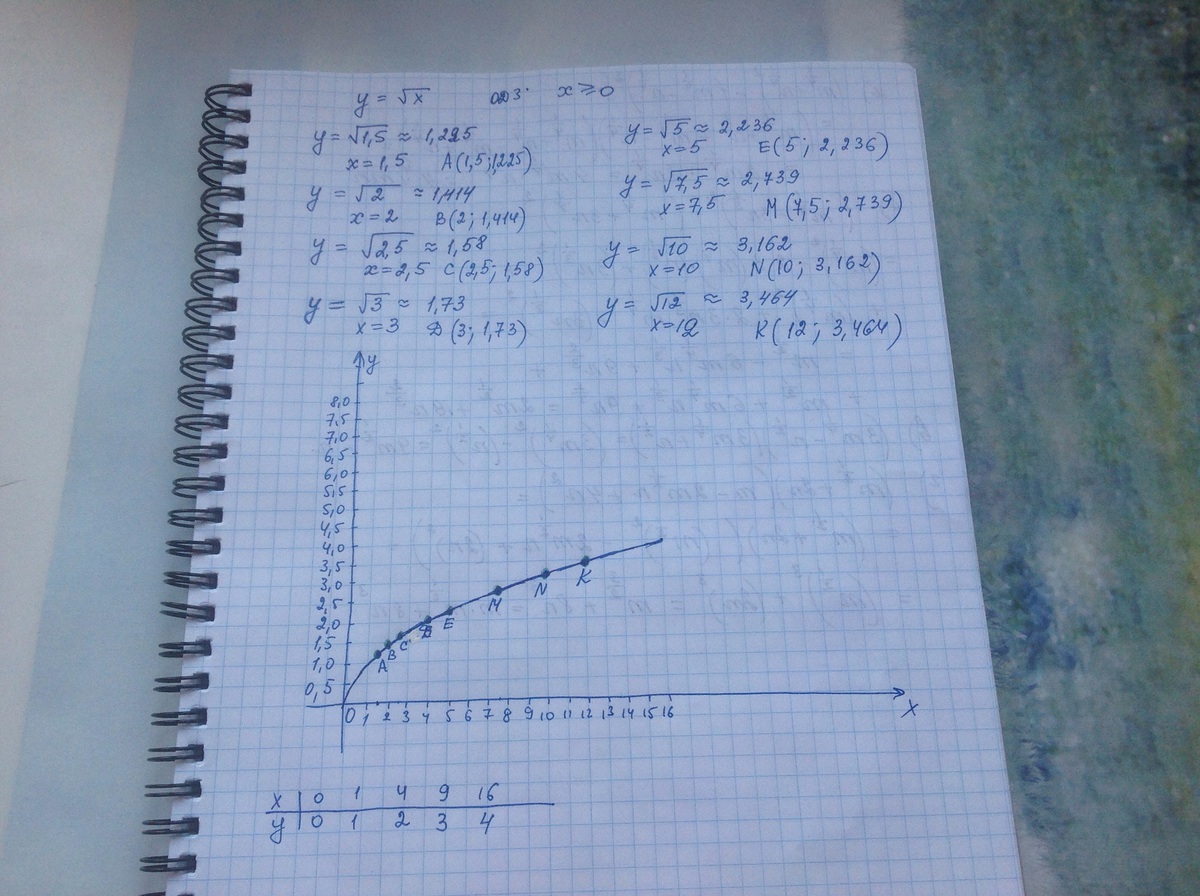 y = √x ОДЗ: x ≥ 0
y = √1,5 ≈ 1,225
x = 1,5 A(1,5; 1,225)
y = √2 ≈ 1,414
x = 2 B(2; 1,414)
y = √2,5 ≈ 1,58
x = 2,5 C(2,5; 1,58)
y = √3 ≈ 1,73
x = 3 D(3; 1,73)
y = √5 ≈ 2,236
x = 5 E(5; 2,236)
y = √7,5 ≈ 2,739
x = 7,5 M(7,5; 2,739)
y = √10 ≈ 3,162
x = 10 N(10; 3,162)
y = √12 ≈ 3,464
x = 12 K(12; 3,464)
y
8,0
7,5
7,0
6,5
6,0
5,5
5,0
4,5
4,0
3,5
3,0
2,5
2,0
1,5
1,0
0,5
A B C D E M N K
0 1 2 3 4 5 6 7 8 9 10 11 12 13 14 15 16
x
x 0 1 4 9 16
y 0 1 2 3 4